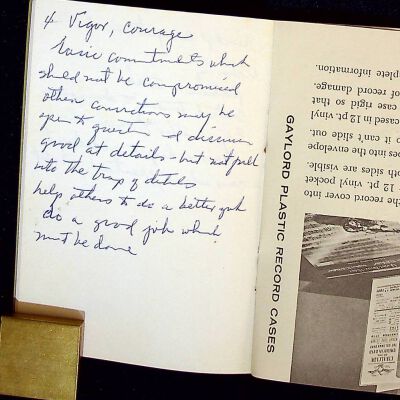 4 Vigor, courage
basic commitments which
should not be compromised
other convictions may be
open to question & discussion
good at details - but not pull
into the trap of details
help others to do a better job
do a good job which
must be done
GAYLORD PLASTIC RECORD CASES
the record cover into
12 pt. vinyl pocket
both sides are visible.
oes into the envelope
o it can't slide out.
cased in 12 pt. vinyl
case rigid so that
of record damage.
plete information.